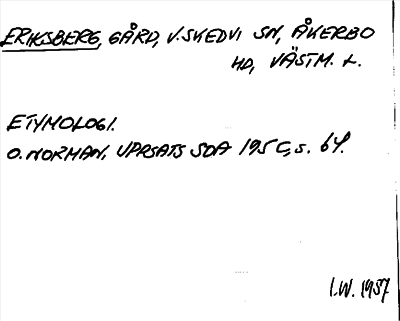 ERIKSBERG, GÅRD, V. SKEDVI SN, ÅKERBO
HD, VÄSTM. L.
ETYMOLOGI.
O. NORMAN, UPPSATS SOA 195 C, s. 64.
I.W. 1987